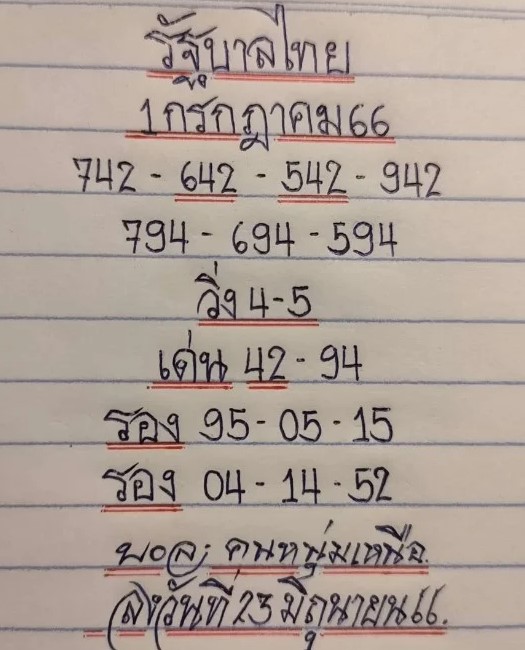 รัฐบาลไทย
1กรกฎาคม66
742 - 642 - 542 - 942
794 - 694 - 594
วิ่ง 4-5
เด่น 42 - 94
รอง 95 - 05 - 15
รอง 04 - 14 - 52
คนหนุ่มเหนือ
วันที่ 23 มิถุนายน66.